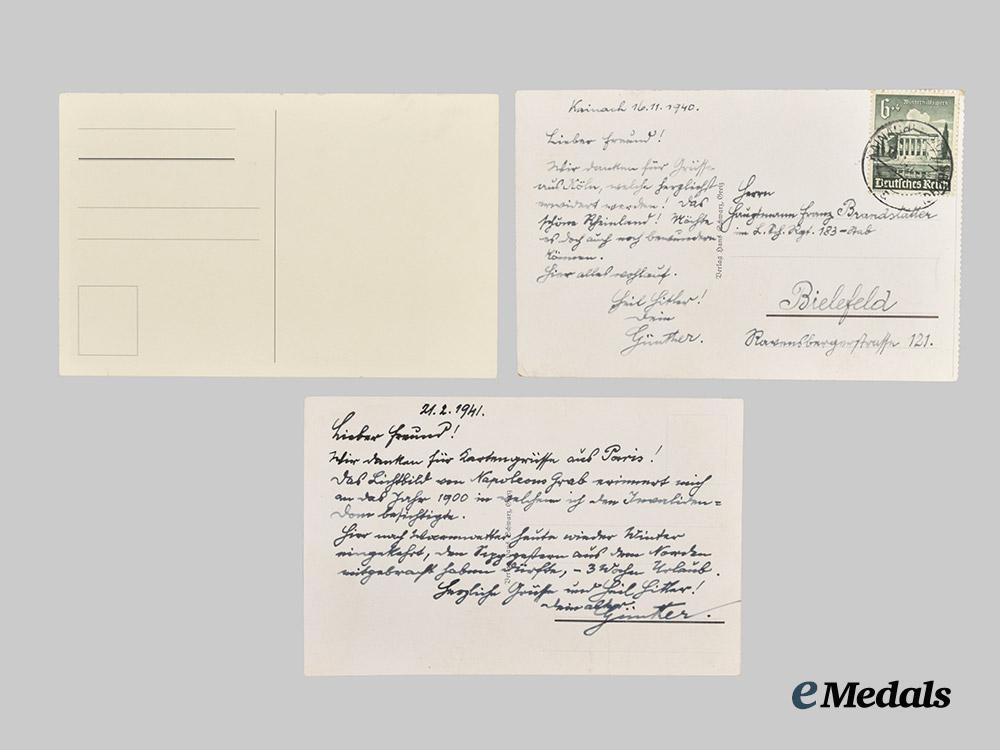 Kainach 16.11.1940.
Lieber Freund!
Wir danken für Grüsse
aus Köln, welche herzlichst
erwidert werden! Das
schöne Rheinland! Möchte
es doch auch noch bewundern
können.
Hier alles wohlauf.
Heil Hitler!
Dein
Günther.
Verlag Hans Schwarz, Greiz
6+4
Winterhilfswerk
Deutsches Reich
Herrn
Hauptmann Franz Brandstätter
im L. Sch. Rgt. 183-Stab
Bielefeld
Ravensbergerstrasse 121.
21.2.1941.
Lieber Freund!
Wir danken für Kartengrüsse aus Paris!
Das Lichtbild von Napoleons Grab erinnert mich
an das Jahr 1900 in welchem ich den Invaliden=
Dom besichtigte.
Hier nach Warmwetter heute wieder Winter
eingekehrt, den Sepp gestern aus dem Norden
mitgebracht haben dürfte, - 3 Wochen Urlaub.
Herzliche Grüsse und Heil Hitler!
Dein alter
Günther.
Schwarz, Greiz
eMedals